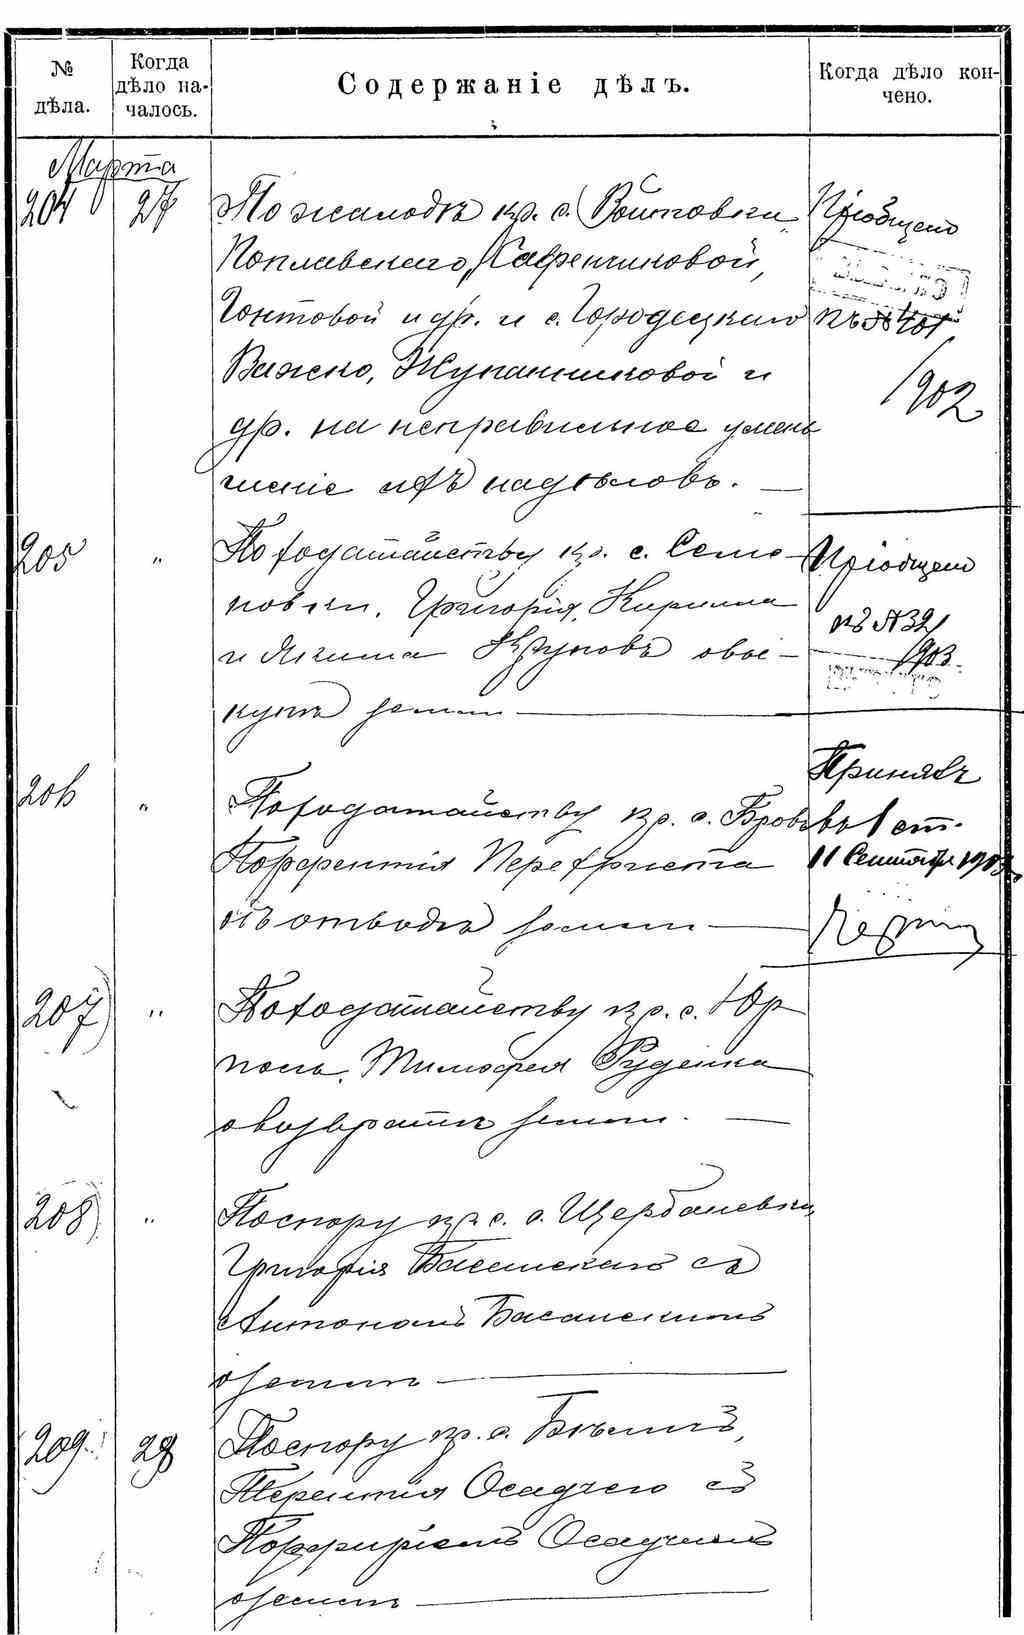 № дѣла.
Когда дѣло началось.
Содержаніе дѣлъ.
Когда дѣло кончено.
Марта
204 27 По жалобѣ кр. с. Войтовки,
Поплавскаго,
Гонтовой и др. и с. Городецкаго
Важко, Жупанниковой и
др. на неправильное умень
шеніе ихъ надѣловъ. —
Пріобщено
къ № 401
/902
205 " По ходатайству кр. с. Семе-
новки, Григорія, Кирилла
и Якима Круковъ о вы-
купѣ земли —
Пріобщено
къ № 32/
903
206 " По ходатайству кр. с.
Перехриста
объ отводѣ земли —
Принявъ
въ 1 ст.
11 Сентября 1903
207) " По ходатайству кр. с. Юр
поль, Тимофея Руденка
о возвратѣ земли. —
208) " По спору кр. с. Щербачевки,
Григорія Басанскаго съ
Антономъ Басанскимъ
о земли —
209 28 По спору кр. с.
Терентія Осадчего съ
Порфиріемъ Осадчимъ
о земли —